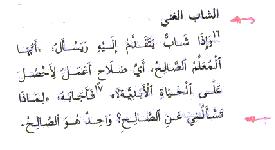 الشاب الغني
١٦وَإِذَا شَابٌّ يَتَقَدَّمُ إِلَيْهِ وَيَسْأَلُ: «أَيُّهَا
الْمُعَلِّمُ الصَّالِحُ، أَيَّ صَلَاحٍ أَعْمَلُ لِأَحْصُلَ
عَلَى الْحَيَاةِ الْأَبَدِيَّةِ؟» ١٧فَأَجَابَهُ: «لِمَاذَا
تَسْأَلُنِي عَنِ الصَّالِحِ؟ وَاحِدٌ هُوَ الصَّالِحُ.